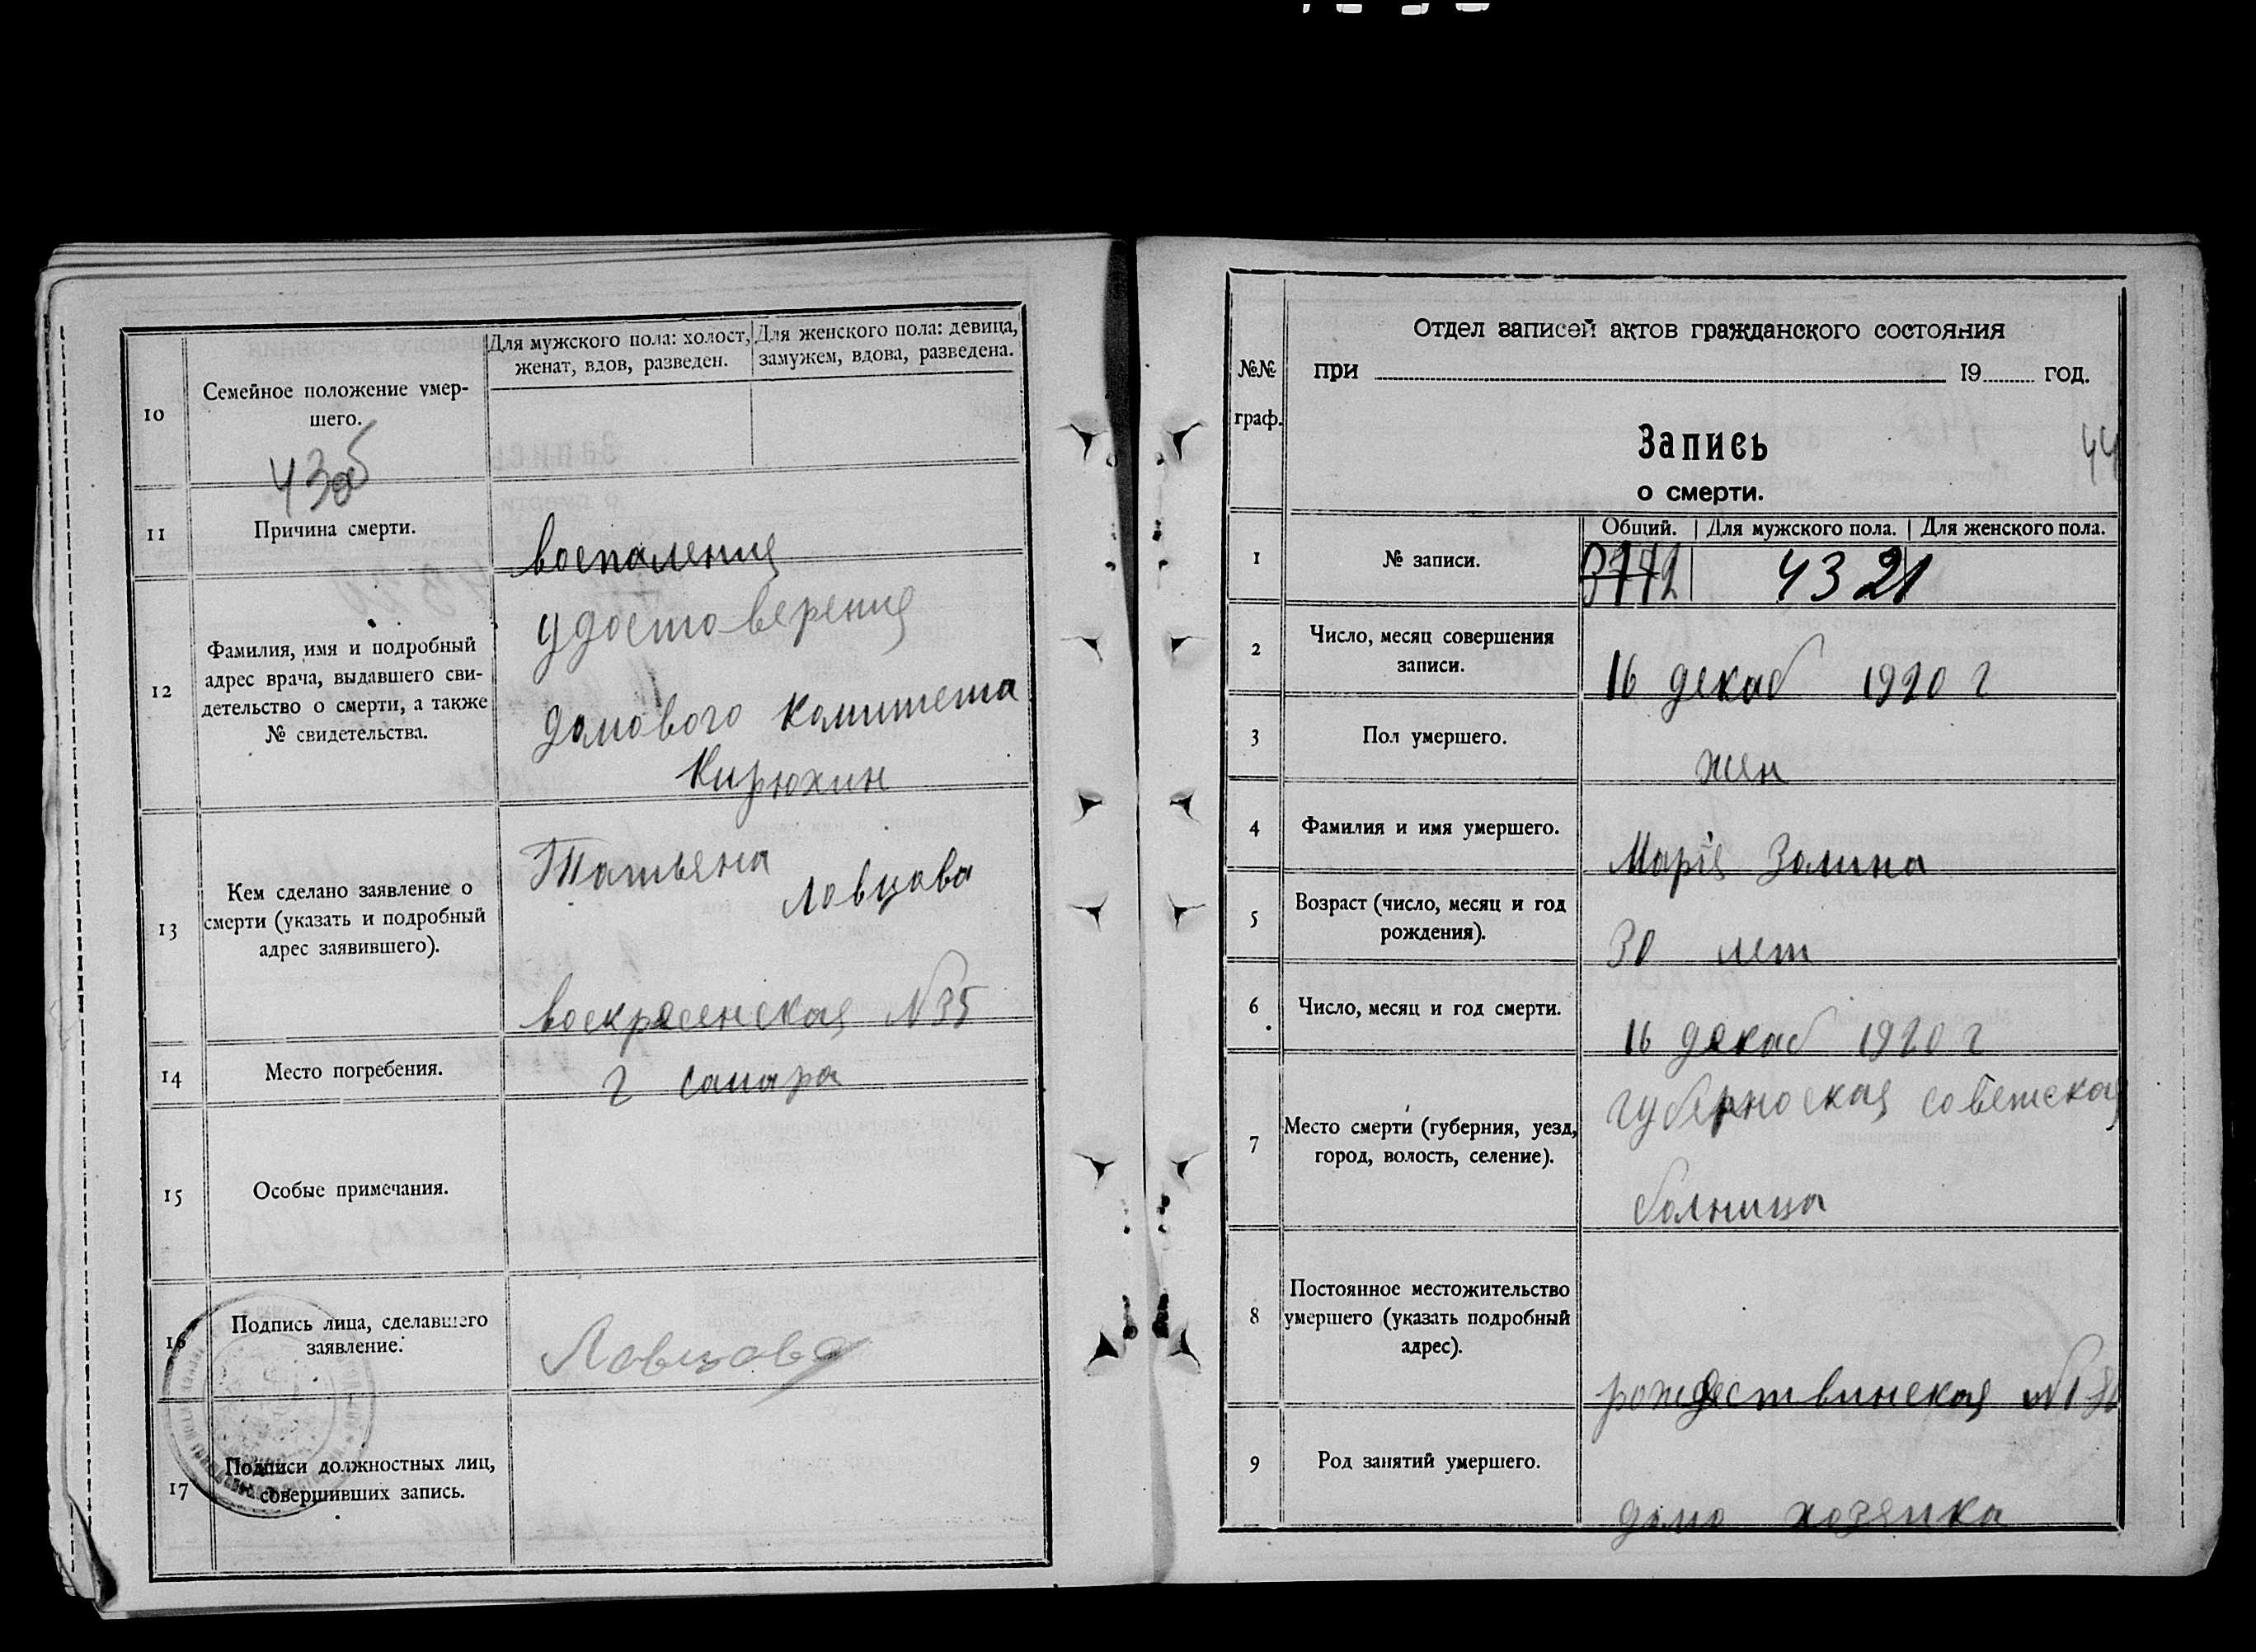 10
Семейное положение умер-
шего.
Для мужского пола: холост,
женат, вдов, разведен.
Для женского пола: девица,
замужем, вдова, разведена.
43об
11
Причина смерти.
воспаления
12
Фамилия, имя и подробный
адрес врача, выдавшего сви-
детельство о смерти, а также
№ свидетельства.
удостоверения
домового комитета
Кирюхин
13
Кем сделано заявление о
смерти (указать и подробный
адрес заявившего).
Татьяна
Ловцова
воскресенская №35
14
Место погребения.
г самара
15
Особые примечания.
16
Подпись лица, сделавшего
заявление.
Ловцова
17
Подписи должностных лиц,
совершивших запись.
№№
граф.
Отдел записей актов гражданского состояния
при 19 год.
Запись
о смерти.
44
1
№ записи.
Общий.
Для мужского пола.
Для женского пола.
4321
2
Число, месяц совершения
записи.
16 декаб 1920 г
3
Пол умершего.
жен
4
Фамилия и имя умершего.
Марія Золина
5
Возраст (число, месяц и год
рождения).
30 лет
6
Число, месяц и год смерти.
16 декаб 1920 г
7
Место смерти (губерния, уезд,
город, волость, селение).
губерноская советская
болница
8
Постоянное местожительство
умершего (указать подробный
адрес).
рождествинская
9
Род занятий умершего.
домо хозяика